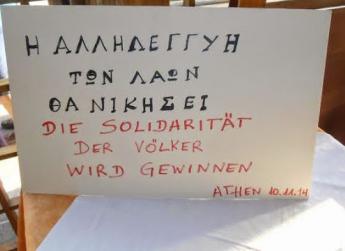 Η ΑΛΛΗΔΕΓΓΥΗ
ΤΩΝ ΛΑΩΝ
ΘΑ ΝΙΚΗΣΕΙ
DIE SOLIDARITÄT
DER VÖLKER
WIRD GEWINNEN
ATHEN 10.11.14